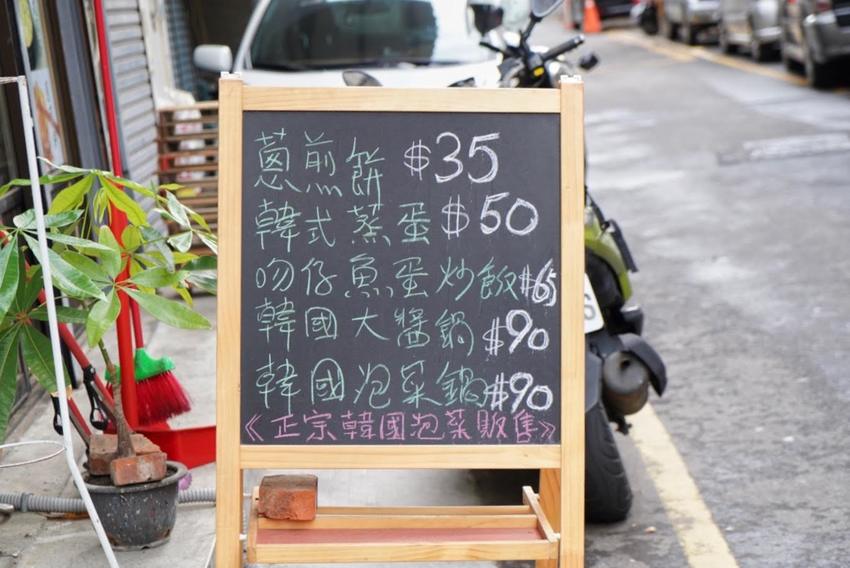 蔥煎餅 $35
韓式蒸蛋 $50
吻仔魚蛋炒飯 $65
韓國大醬鍋 $90
韓國泡菜鍋 $90
《正宗韓國泡菜販售》